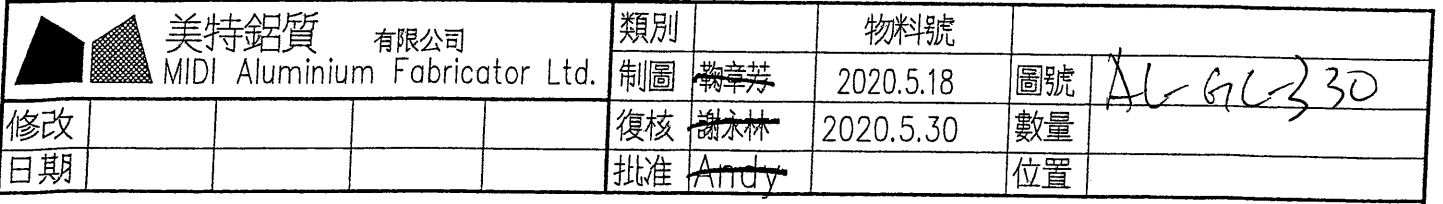 美特鋁質 有限公司
MIDI Aluminium Fabricator Ltd.
類別 物料號
制圖 鞠章芳 2020.5.18 圖號 AL-GL-330
修改 復核 謝永林 2020.5.30 數量
日期 批准 Andy 位置